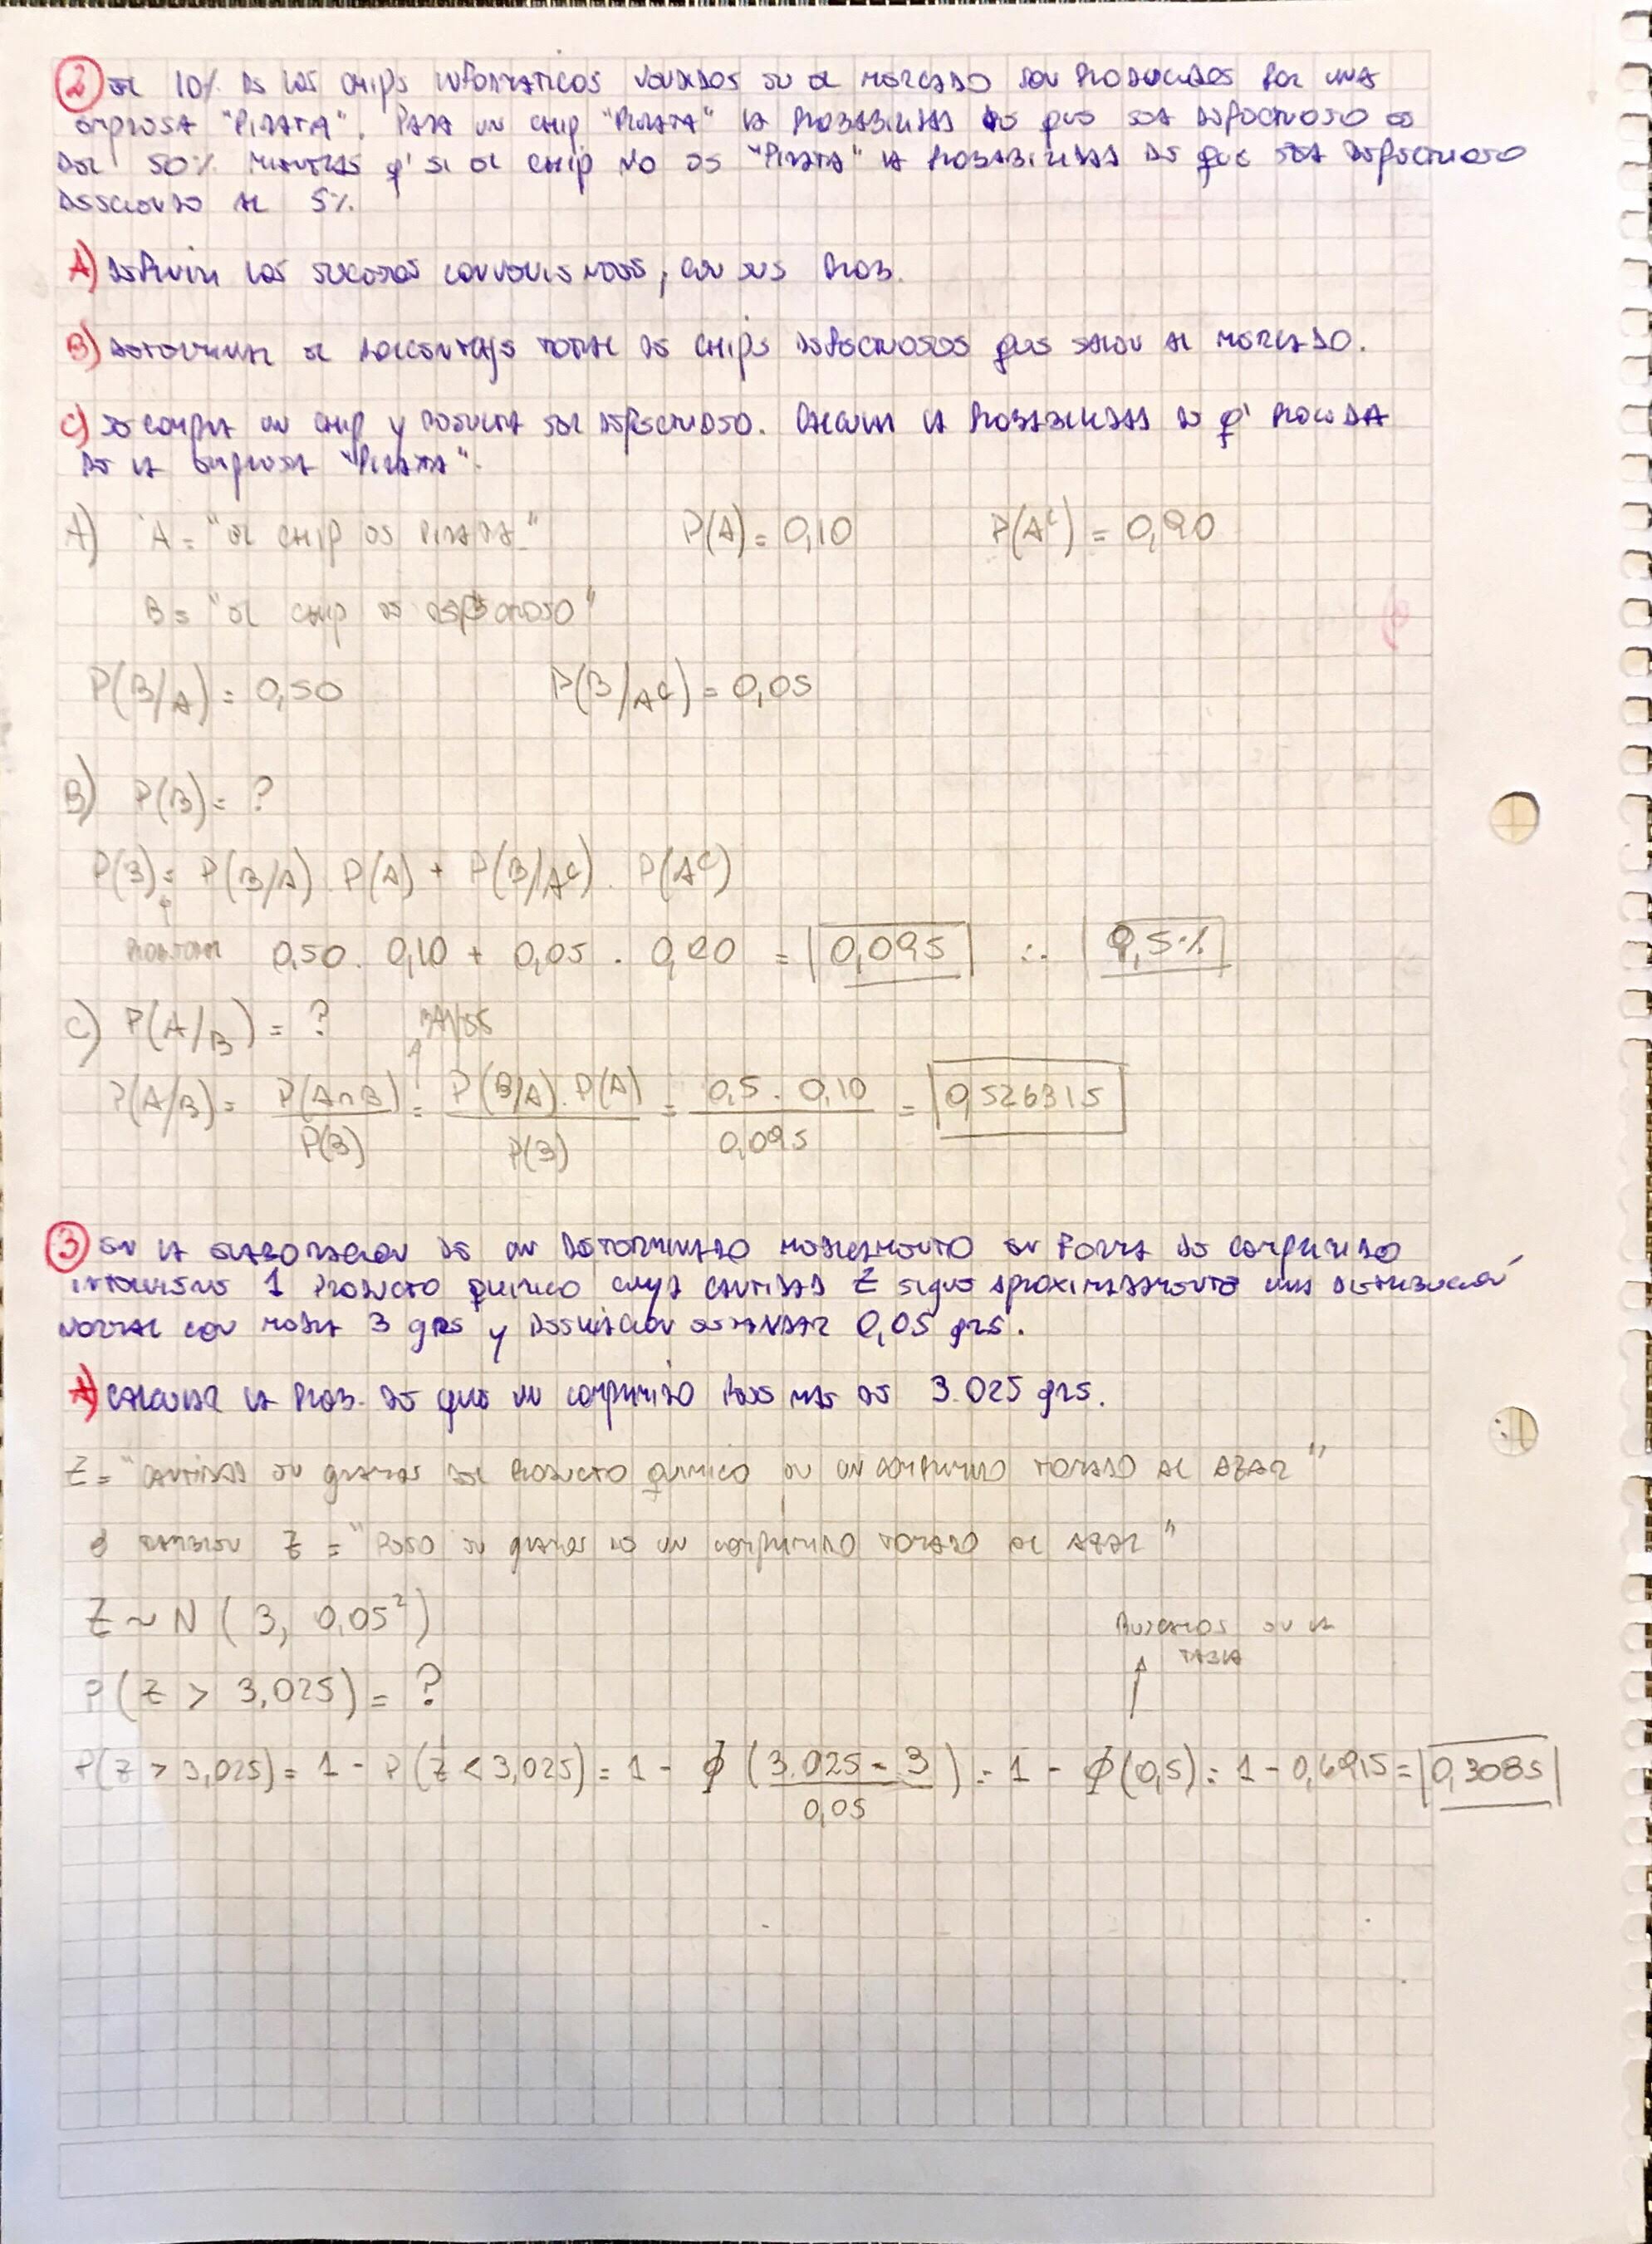 2) El 10% de los chips informaticos vendidos en el mercado son producidos por una
empresa "Pirata". Para un chip "Pirata" la probabilidad de que sea defectuoso es
del 50% mientras q' si el chip no es "Pirata" la probabilidad de que sea defectuoso
desciende al 5%.
A) Definir los sucesos convenientes, con sus prob.
B) Determinar el porcentaje total de chips defectuosos que salen al mercado.
C) Se compra un chip y resulta ser defectuoso. Calcular la probabilidad de q' proceda
de la empresa "Pirata".
A) A = "el chip es pirata" P(A) = 0,10 P(Aᶜ) = 0,90
B = "el chip es defectuoso"
P(B/A) = 0,50 P(B/Aᶜ) = 0,05
B) P(B) = ?
P(B) = P(B/A) . P(A) + P(B/Aᶜ) . P(Aᶜ)
0,50 . 0,10 + 0,05 . 0,90 = 0,095 ∴ 9,5%
C) P(A/B) = ? Bayes
P(A/B) = P(A∩B) / P(B) = P(B/A) . P(A) / P(B) = 0,5 . 0,10 / 0,095 = 0,526315
3) En la elaboracion de un determinado medicamento en forma de comprimido
interviene 1 producto quimico cuya cantidad Z sigue aproximadamente una distribución
normal con media 3 grs y desviacion estandar 0,05 grs.
A) Calcular la prob. de que un comprimido pese mas de 3.025 grs.
Z = "cantidad en gramos del producto quimico en un comprimido tomado al azar"
o tambien Z = "Peso en gramos de un comprimido tomado al azar"
Z ~ N (3, 0,05²)
Buscamos en la
tabla
P(Z > 3,025) = ?
P(Z > 3,025) = 1 - P(Z < 3,025) = 1 - ϕ (3.025 - 3 / 0,05) = 1 - ϕ(0,5) = 1 - 0,6915 = 0,3085